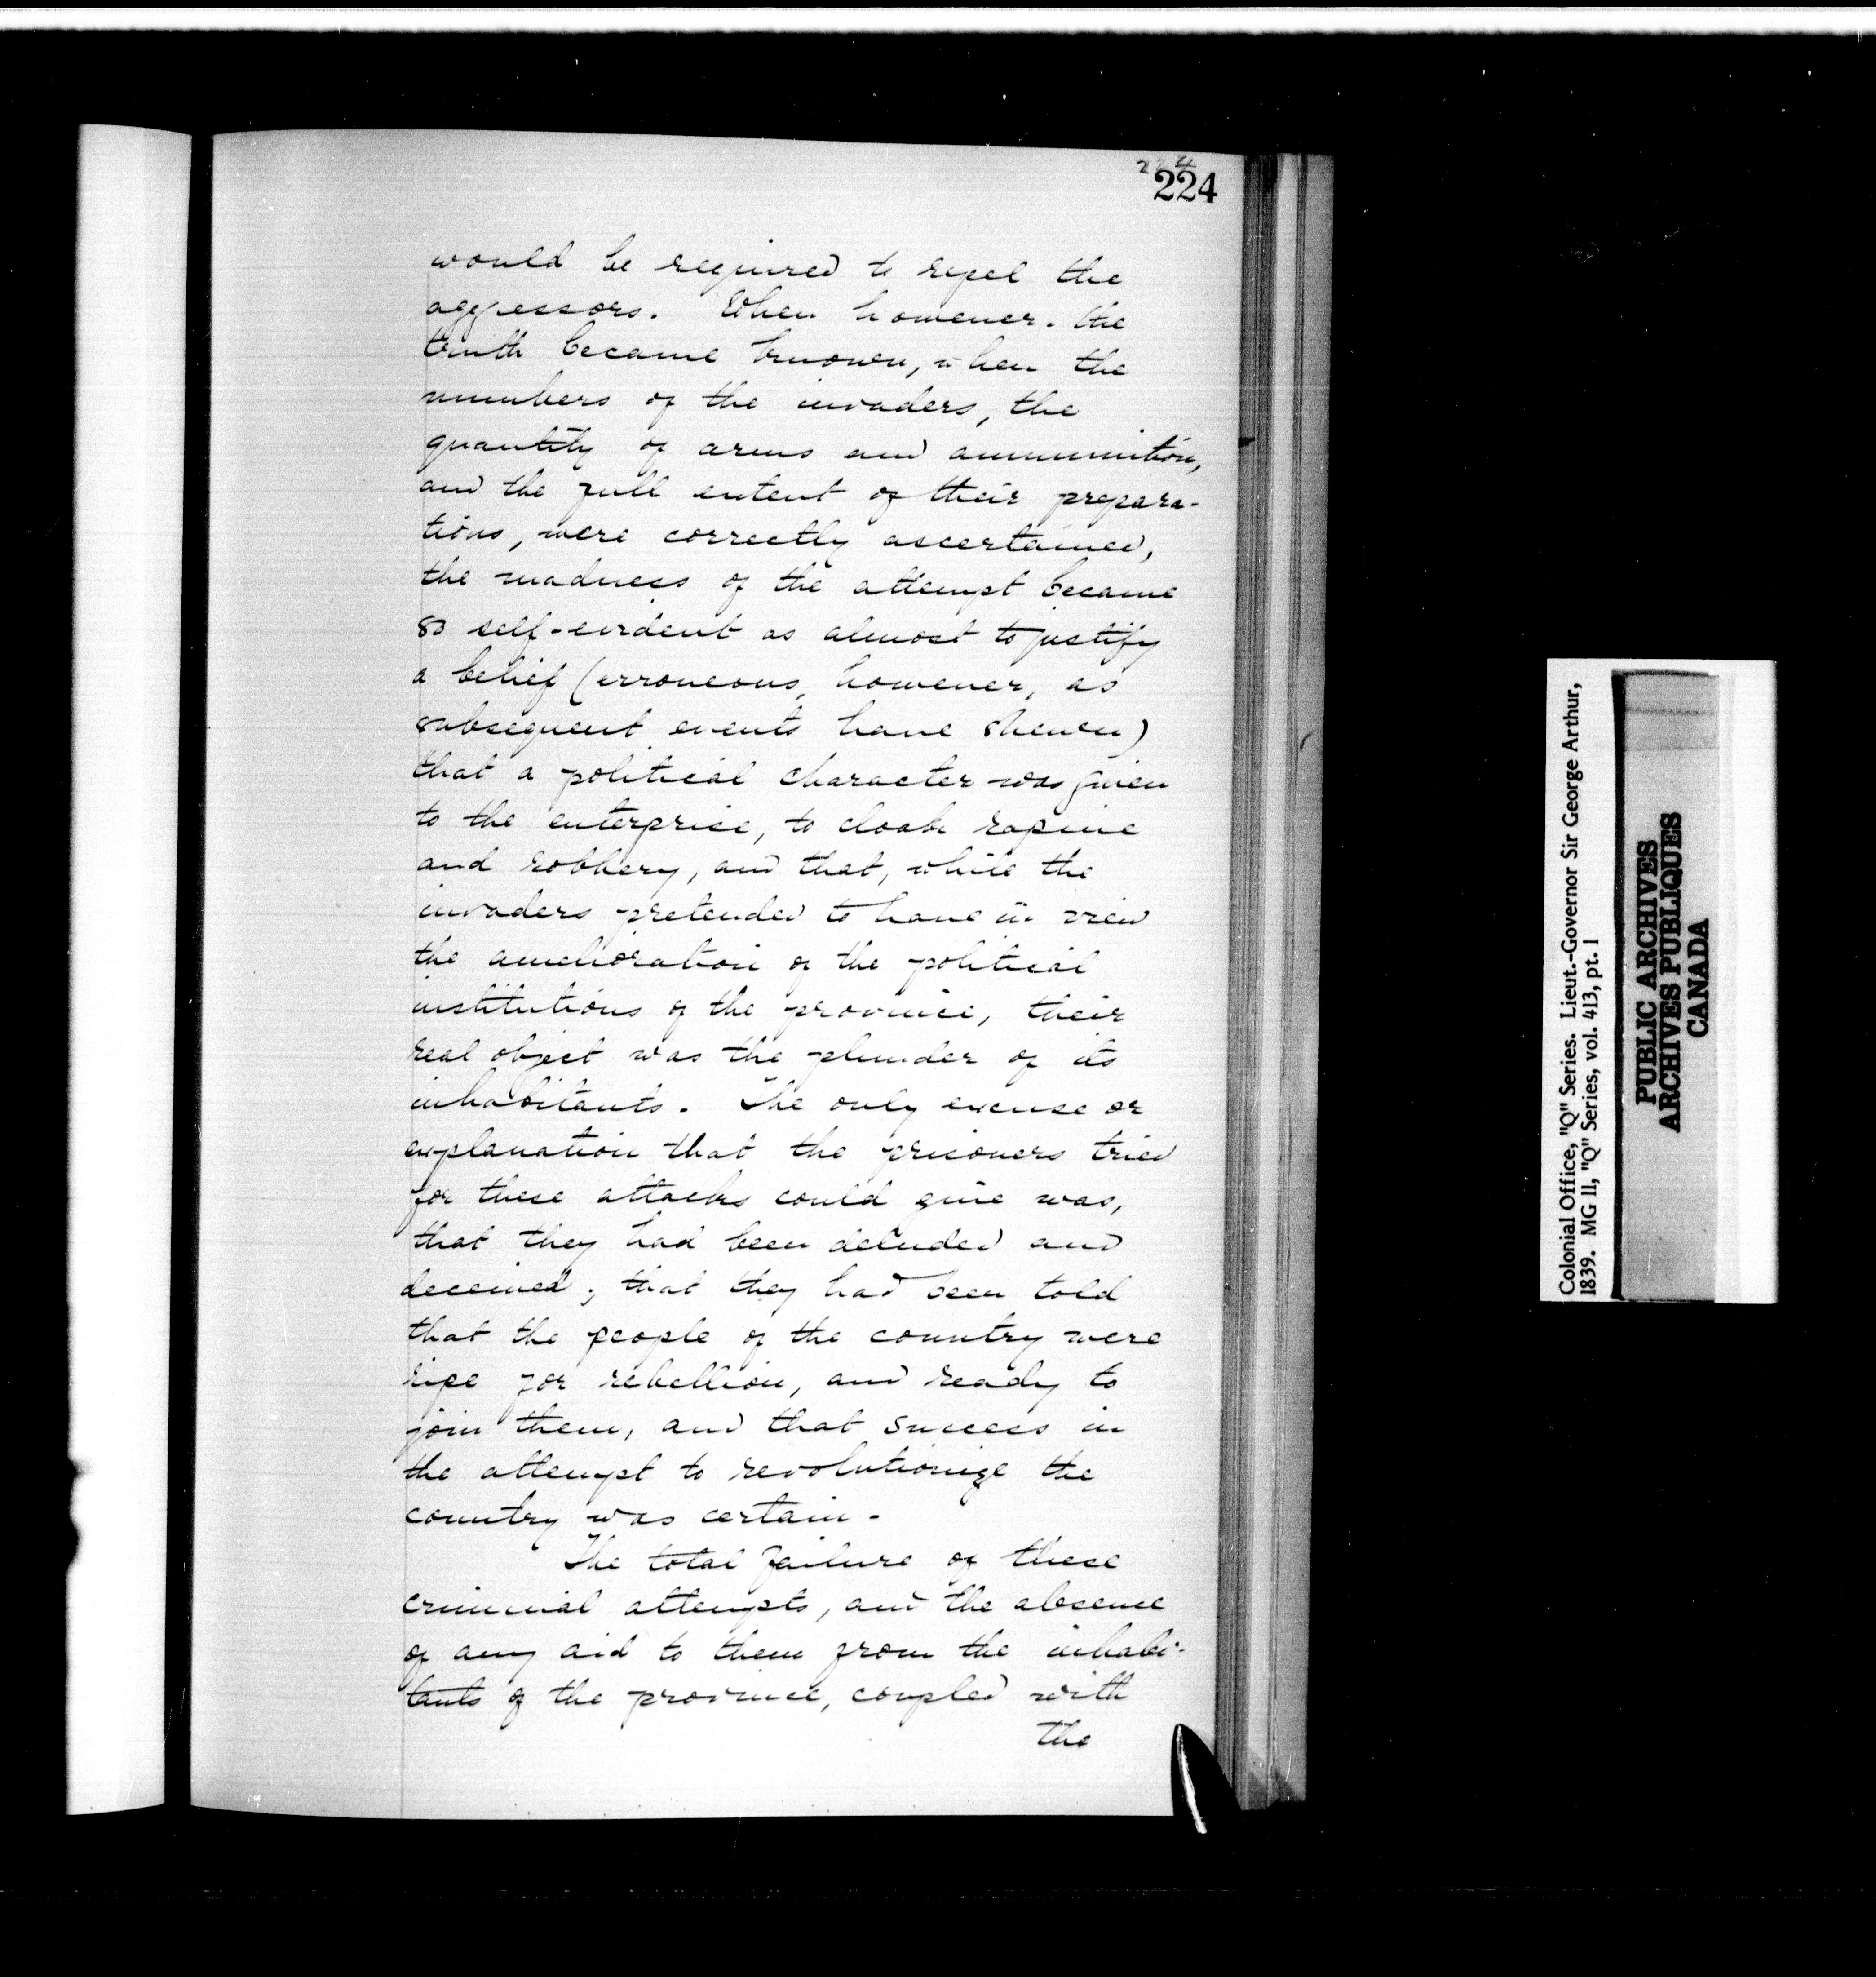 224
224
would be required to repel the
aggressors. When however. the
truth became known, when the
numbers of the invaders, the
quantity of arms and ammunition,
and the full extent of their prepara-
tions, were correctly ascertained,
the madness of the attempt became
so self-evident as almost to justify
a belief (erroneous, however, as
subsequent events have shewn)
that a political character was given
to the enterprise, to cloak rapine
and robbery, and that, while the
invaders pretended to have in view
the amelioration of the political
institutions of the province, their
real object was the plunder of its
inhabitants. The only excuse or
explanation that the prisoners tried
for these attacks could give was,
that they had been deluded and
deceived; that they had been told
that the people of the country were
ripe for rebellion, and ready to
join them, and that success in
the attempt to revolutionize the
country was certain.
The total failure of these
criminal attempts, and the absence
of any aid to them from the inhabi-
tants of the province, coupled with
the
Colonial Office, "Q" Series. Lieut.-Governor Sir George Arthur,
1839. MG 11, "Q" Series, vol. 413, pt. 1
PUBLIC ARCHIVES
ARCHIVES PUBLIQUES
CANADA